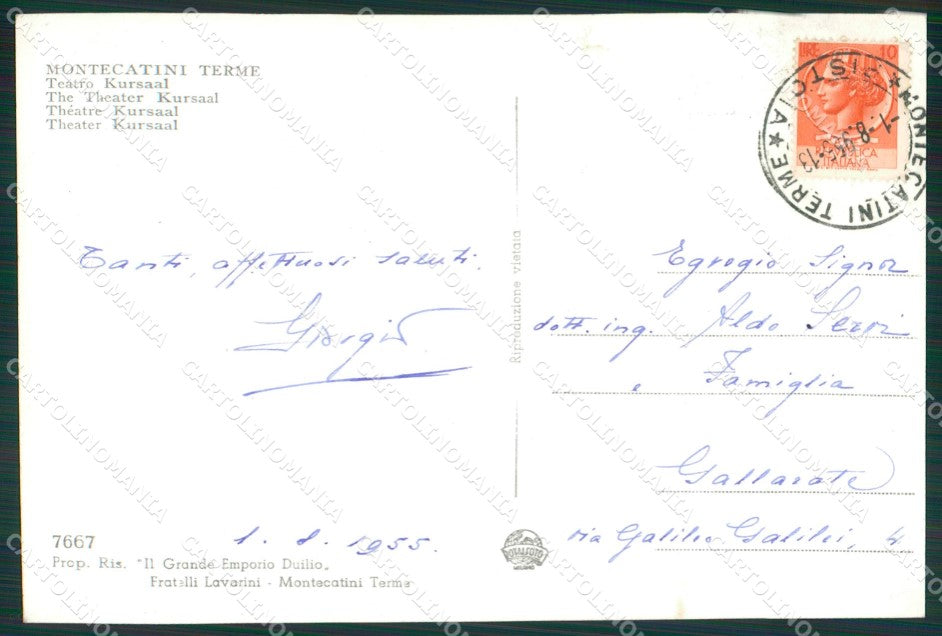 MONTECATINI TERME
Teatro Kursaal
The Theater Kursaal
Théatre Kursaal
Theater Kursaal
LIRE 10
REPUBBLICA
ITALIANA
★ MONTECATINI TERME ★
-1.-8.
13
Tanti, affettuosi saluti.
Giorgio
Riproduzione vietata
Egregio Signor
dott. ing. Aldo
e Famiglia
Gallarate
via Galileo Galilei, 4
1. 8. 1955.
7667
Prop. Ris. "Il Grande Emporio Duilio„
Fratelli Lavarini - Montecatini Terme
ROTALFOTO
MILANO
CARTOLINOMANIA